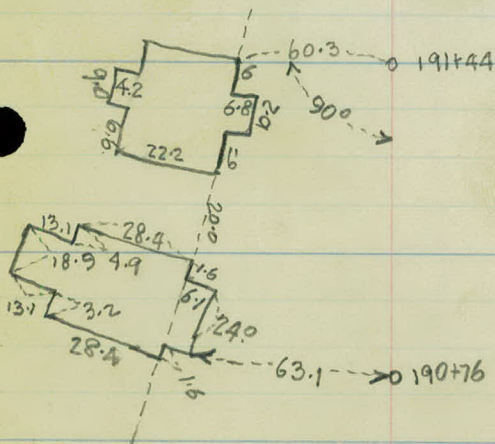 60.3
191+44
6
9.0
4.2
6.8
2.9
90°
6.6
22.2
20.0
13.1
28.4
18.9
4.9
1.6
6.1
13.1
3.2
24.0
28.4
1.6
63.1
190+76